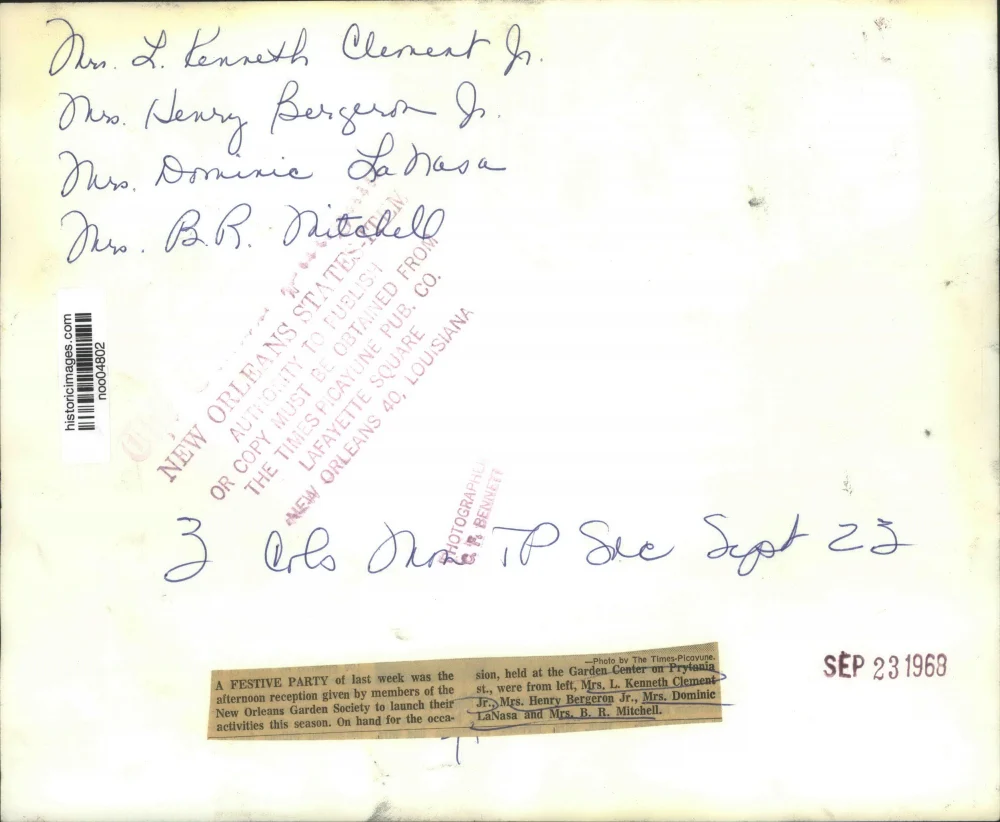 Mrs. L. Kenneth Clement Jr.
Mrs. Henry Bergeron Jr.
Mrs. Dominic LaNasa
Mrs. B.R. Mitchell
historicimages.com
noo04802
NEW ORLEANS STATES-ITEM
AUTHORITY TO PUBLISH
OR COPY MUST BE OBTAINED FROM
THE TIMES-PICAYUNE PUB. CO.
LAFAYETTE SQUARE
NEW ORLEANS 40, LOUISIANA
PHOTOGRAPHER
BENNETT
3 Cols Mon TP Soc Sept 23
SEP 23 1968
—Photo by The Times-Picayune.
A FESTIVE PARTY of last week was the
afternoon reception given by members of the
New Orleans Garden Society to launch their
activities this season. On hand for the occa-
sion, held at the Garden Center on Prytania
st., were from left, Mrs. L. Kenneth Clement
Jr., Mrs. Henry Bergeron Jr., Mrs. Dominic
LaNasa and Mrs. B. R. Mitchell.